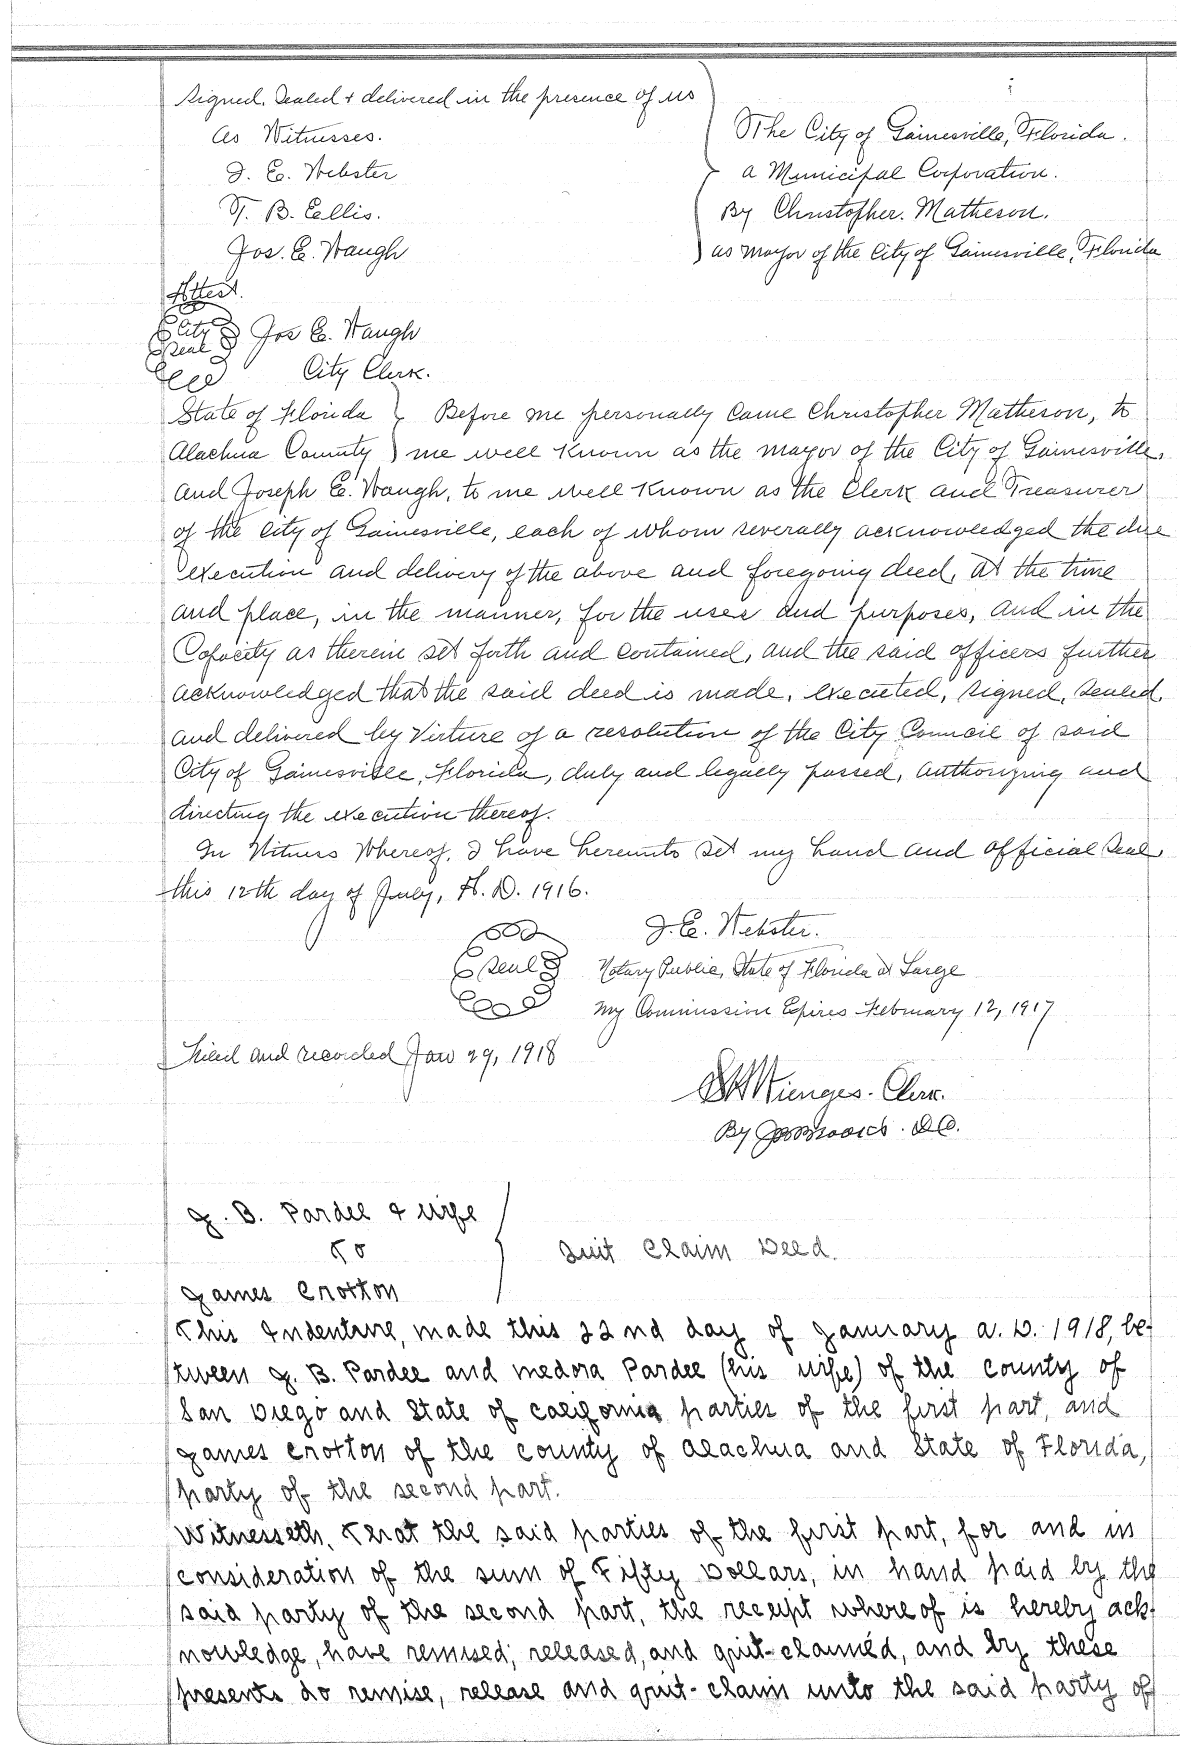 Signed, Sealed & delivered in the presence of us
as Witnesses.
J. E. Webster
T. B. Eellis.
Jos. E. Waugh
The City of Gainesville, Florida.
a Municipal Corporation.
By Christopher. Matheson.
as Mayor of the City of Gainesville, Florida
Attest.
City Seal
Jos E. Waugh
City Clerk.
State of Florida } Before me personally came Christopher Matheson, to
Alachua County } me well known as the mayor of the City of Gainesville,
and Joseph E. Waugh, to me well known as the Clerk and Treasurer
of the City of Gainesville, each of whom severally acknowledged the due
execution and delivery of the above and foregoing deed, at the time
and place, in the manner, for the uses and purposes, and in the
Capacity as therein set forth and contained, and the said officers further
acknowledged that the said deed is made, executed, signed, sealed
and delivered by Virture of a resolution of the City Council of said
City of Gainesville, Florida, duly and legally passed, authorizing and
directing the execution thereof.
In Witness Whereof, I have hereunto set my hand and official seal
this 12th day of July, A. D. 1916.
J. E. Webster.
Seal
Notary Public, State of Florida at Large
My Commission Expires February 12, 1917
Filed and recorded Jan 29, 1918
S H Wienges - Clerk.
By D.C.
J. B. Pardee & wife
To
James Croxton
Quit Claim Deed.
This Indenture, made this 22nd day of January A. D. 1918, be-
tween J. B. Pardee and Medora Pardee (his wife) of the County of
San Diego and State of California parties of the first part, and
James Croxton of the County of Alachua and State of Florida,
party of the second part.
Witnesseth, That the said parties of the first part, for and in
consideration of the sum of Fifty Dollars, in hand paid by the
said party of the second part, the receipt whereof is hereby ack-
nowledge, have remised, released, and quit-claimed, and by these
presents do remise, release and quit-claim unto the said party of